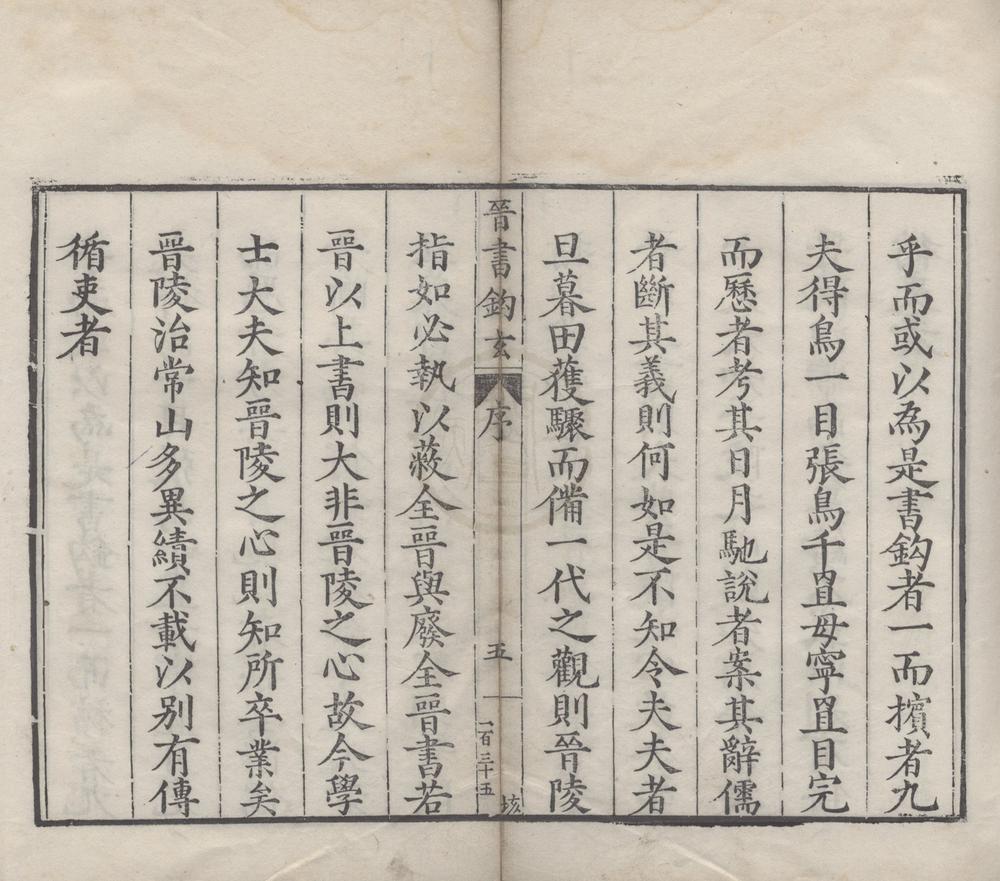 乎而或以為是書鈎者一而擯者九
夫得鳥一目張鳥千罝毋寧罝目完
而歷者考其日月馳說者案其辭儒
者斷其義則何如是不知令夫夫者
旦暮田獲驟而備一代之觀則晉陵
晉書鈎玄
序
五
一百三十五
垓
指如必執以蔽全晉與廢全晉書若
晉以上書則大非晉陵之心故今學
士大夫知晉陵之心則知所卒業矣
晉陵治常山多異績不載以別有傳
循吏者